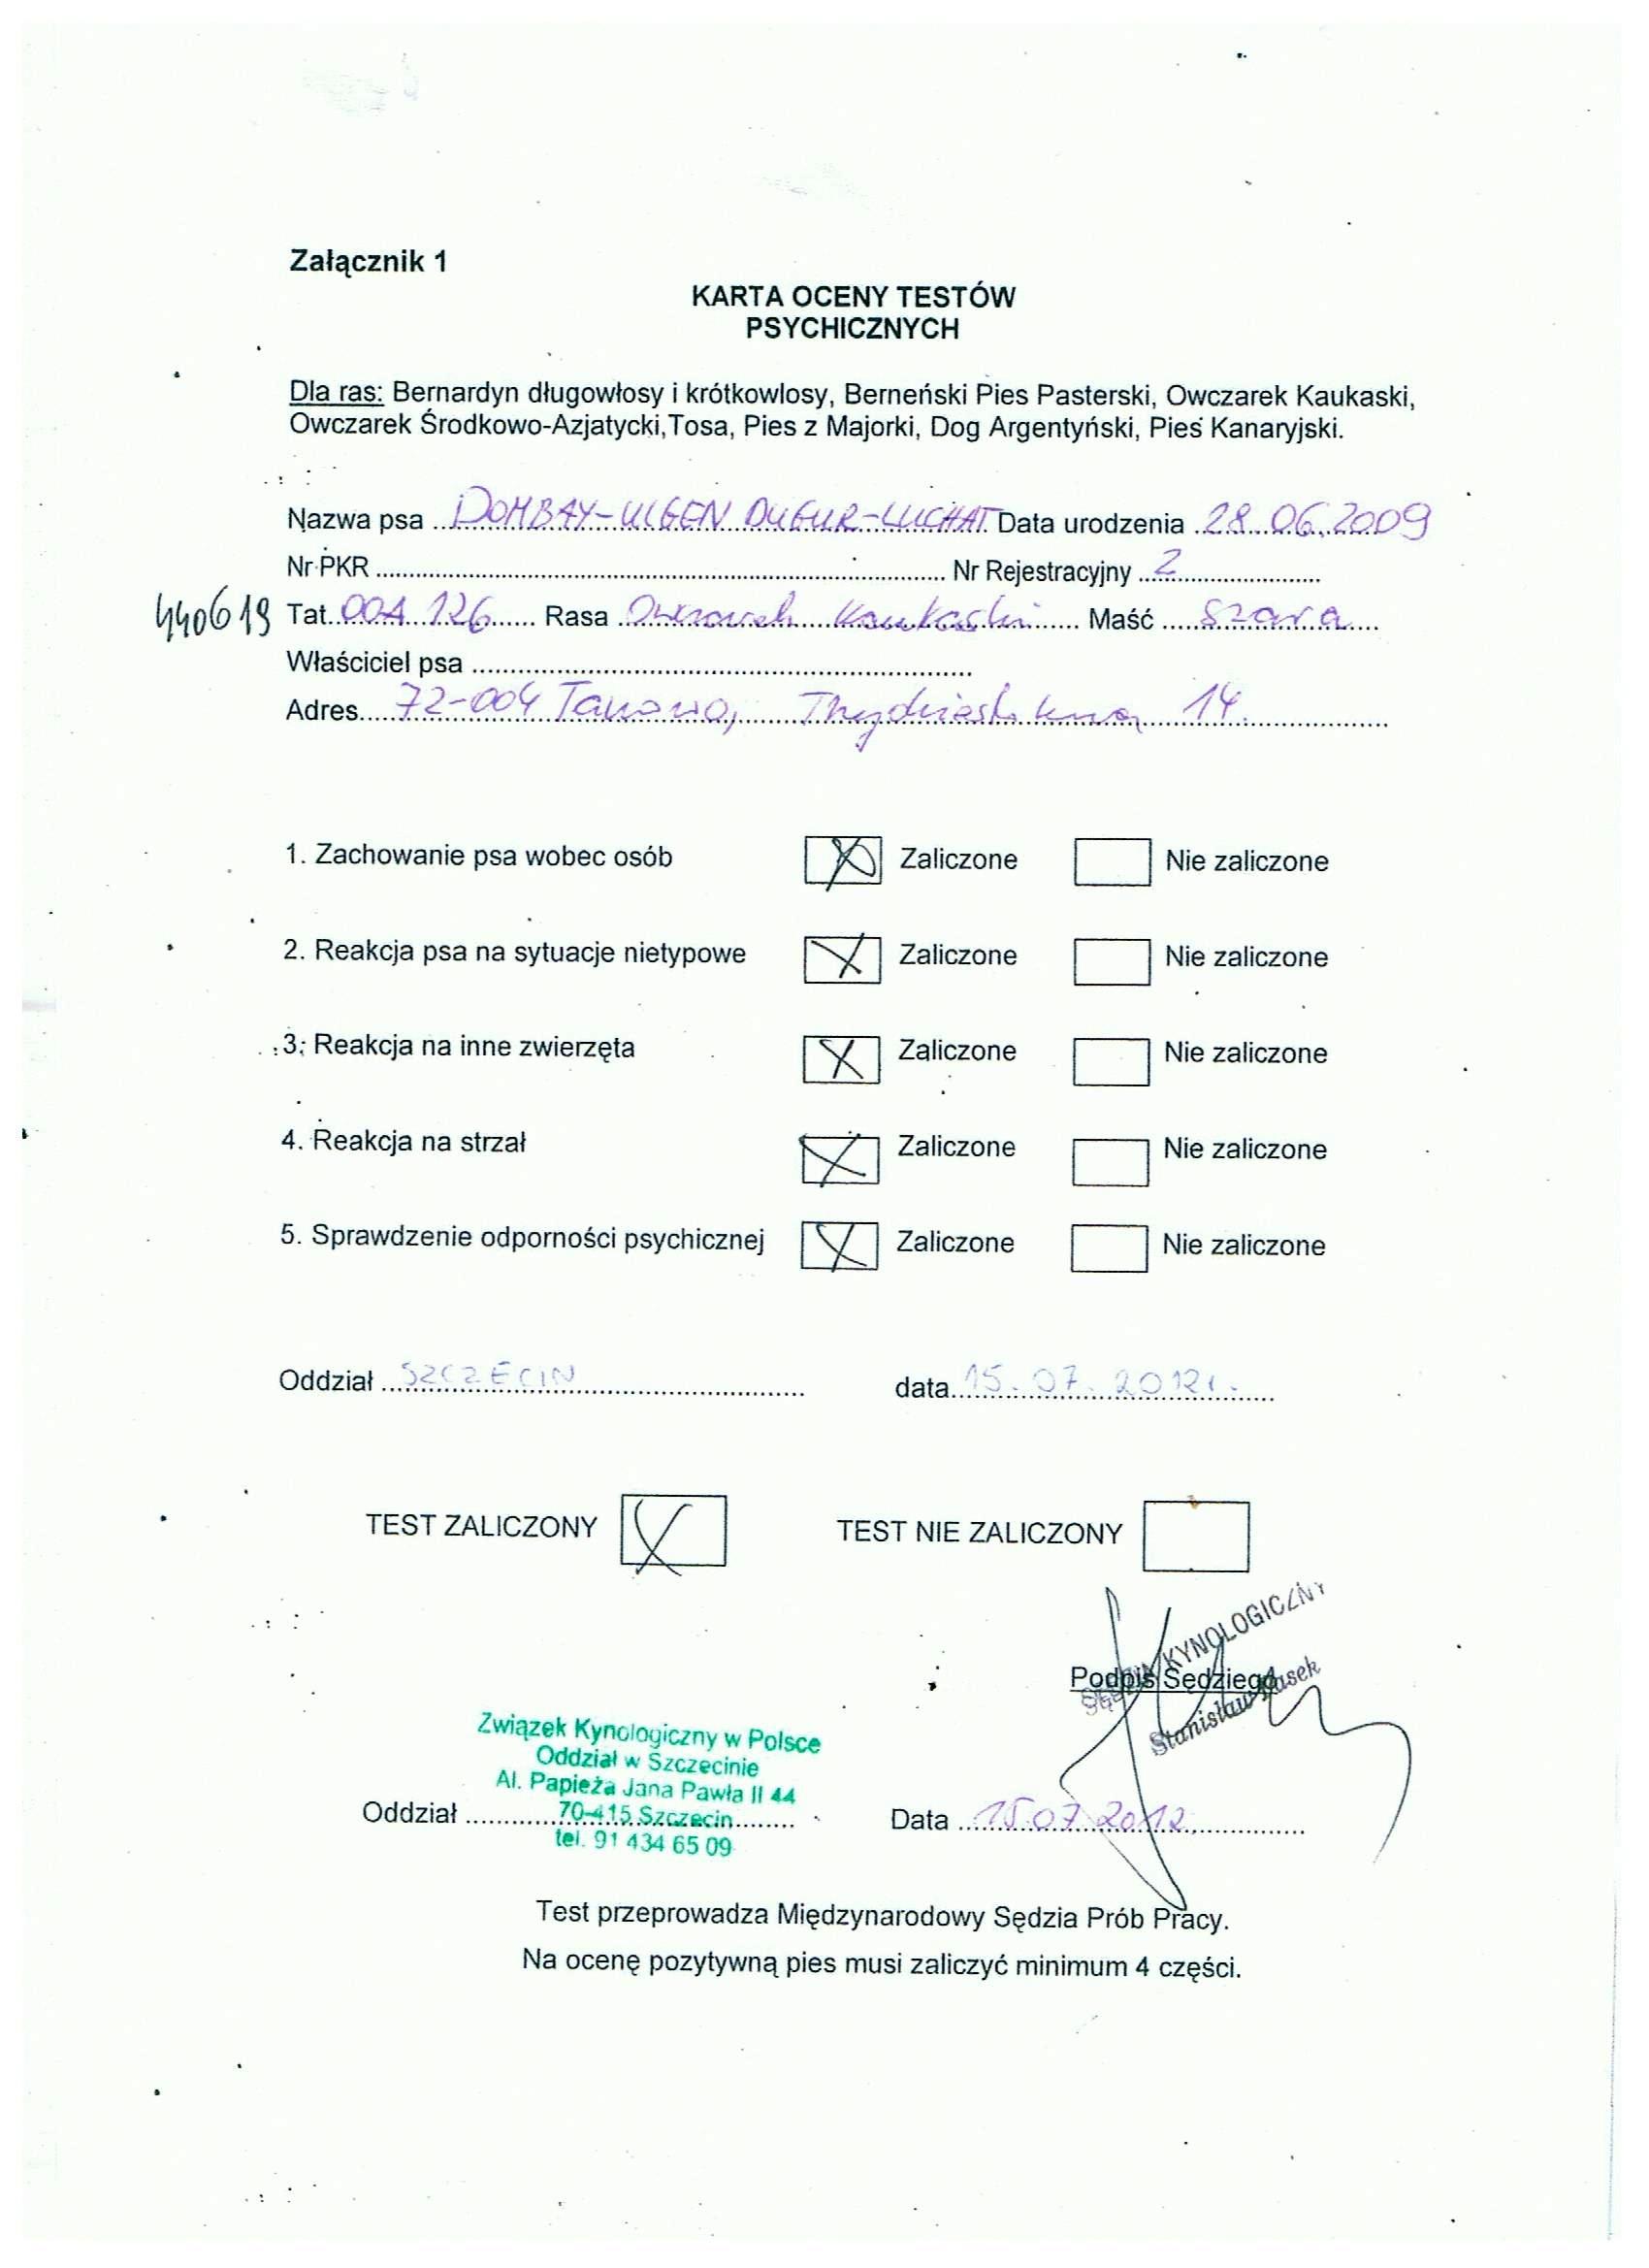 Załącznik 1
KARTA OCENY TESTÓW
PSYCHICZNYCH
Dla ras: Bernardyn długowłosy i krótkowlosy, Berneński Pies Pasterski, Owczarek Kaukaski,
Owczarek Środkowo-Azjatycki,Tosa, Pies z Majorki, Dog Argentyński, Pies Kanaryjski.
Nazwa psa DOMBAY-ULGEN DUGUR-LUCHAT Data urodzenia 28.06.2009
Nr PKR Nr Rejestracyjny 2
440619 Tat. 00A 126 Rasa Owczarek Kaukaski Maść szara
Właściciel psa
Adres 72-004 Tanowo, 14
1. Zachowanie psa wobec osób Zaliczone Nie zaliczone
2. Reakcja psa na sytuacje nietypowe Zaliczone Nie zaliczone
3. Reakcja na inne zwierzęta Zaliczone Nie zaliczone
4. Reakcja na strzał Zaliczone Nie zaliczone
5. Sprawdzenie odporności psychicznej Zaliczone Nie zaliczone
Oddział SZCZECIN data 15.07.2012r.
TEST ZALICZONY TEST NIE ZALICZONY
SĘDZIA KYNOLOGICZNY
Podpis Sędziego
Stanisław
Związek Kynologiczny w Polsce
Oddział w Szczecinie
Al. Papieża Jana Pawła II 44
70-415 Szczecin
Oddział Data 15.07.2012
tel. 91 434 65 09
Test przeprowadza Międzynarodowy Sędzia Prób Pracy.
Na ocenę pozytywną pies musi zaliczyć minimum 4 części.